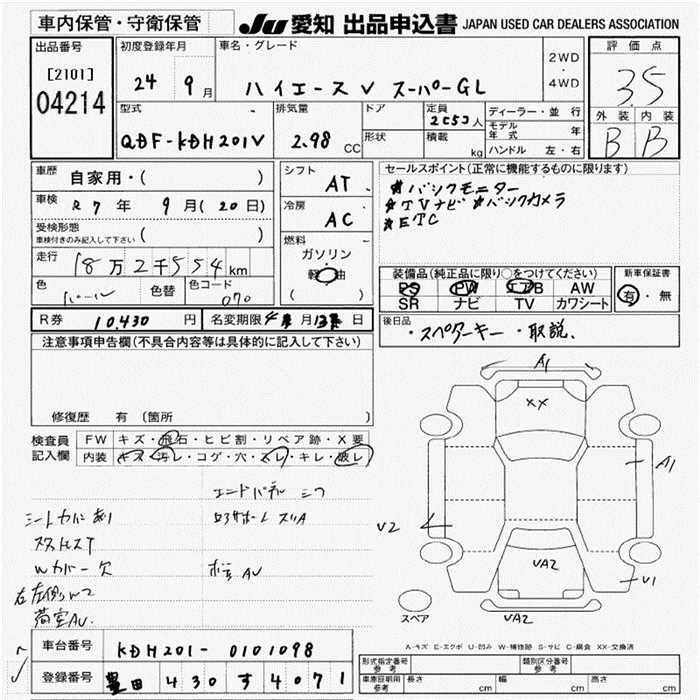 車内保管・守衛保管
JU 愛知 出品申込書 JAPAN USED CAR DEALERS ASSOCIATION
出品番号
[2101]
04214
初度登録年月
24 9月
車名・グレード
ハイエース V スーパーGL
2WD
・
4WD
評価点
3.5
外装 内装
B B
型式
QDF-KDH201V
排気量
2.98 CC
ドア
形状
定員
2C53人
積載
kg
ディーラー・並行
モデル年式 年
ハンドル 左・右
車歴 自家用・( )
車検 R7年 9月(20日)
受検形態
車検付きのみ記入して下さい ( )
走行 18万2千554km
色 パール 色替 色コード 070
シフト AT
冷房 AC
燃料
ガソリン
軽油
( )
セールスポイント(正常に機能するものに限ります)
*バックモニター
*TVナビ *バックカメラ
*ETC
装備品(純正品に限り○をつけてください)
PS PW エアB AW
SR ナビ TV カワシート
新車保証書
有・無
R券 10,430円 名変期限 4月 13日
後日品
・スペアーキー ・取説、
注意事項申告欄(不具合内容等は具体的に記入して下さい)
修復歴 有 (箇所 )
検査員
記入欄
FW キズ・飛石・ヒビ割・リペア跡・X要
内装 キズ・汚レ・コゲ・穴・スレ・キレ・破レ
シートカバーあり
Wカバー欠
荷室AU
エンドパネル
AU
A1
XX
A1
V2
VA2
V1
VA2
スペア
A-キズ E-エクボ U-凹み W-補修跡 S-サビ C-腐食 XX-交換済
車台番号 KDH201-0101098
登録番号 豊田 430 す 4071
形式指定番号
参考
類別区分番号
参考
車庫証明用
参考
長さ cm 幅 cm 高さ cm